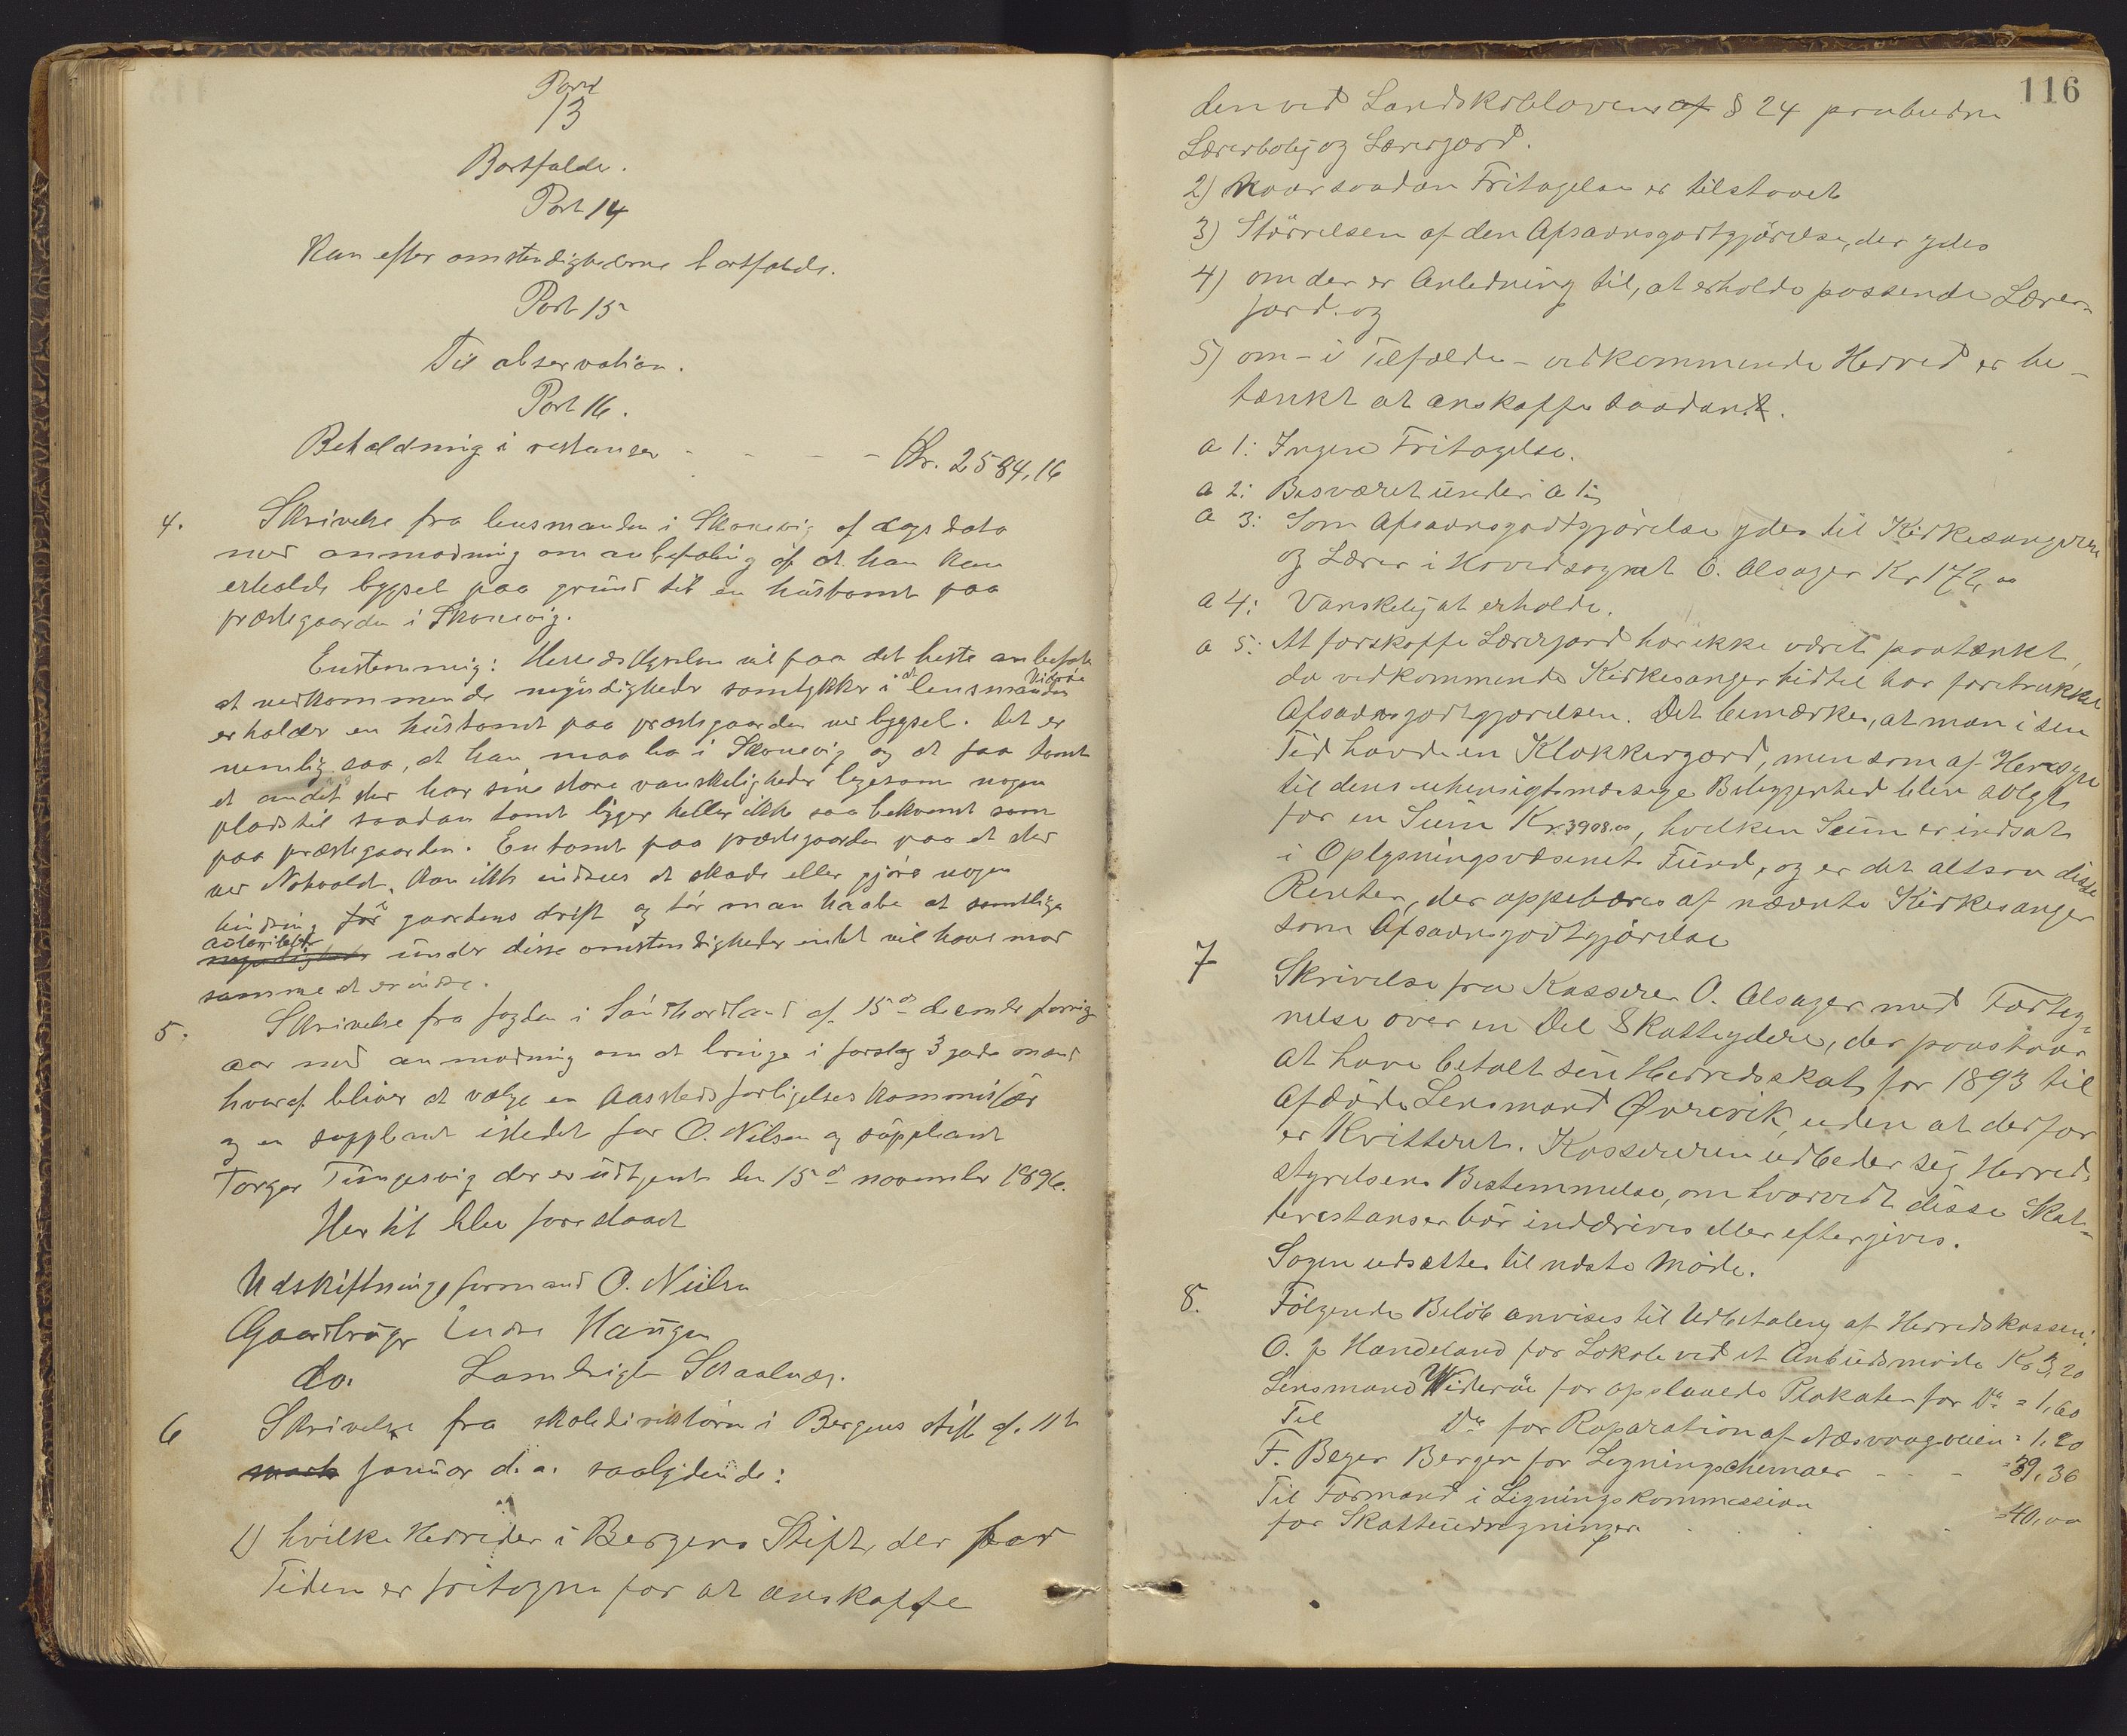 Post
13
Bortfalde.
Post 14
Kan efter omstendighederne bortfalde.
Post 15
Til observation.
Post 16.
Beholdning i restanser - - - - Kr. 2584,16
4. Skrivelse fra lensmanden i Skonevig af dags dato
med anmodning om anbefaling af at han kan
erholde bygsel paa grund til en hustomt paa
præstegaarden i Skonevig.
Enstemmig: Herredsstyrelsen vil paa det beste anbefale
at vedkommende myndigheder samtykker i at lensmanden Viderøe
erholder en hustomt paa præstegaarden ved bygsel. Det er
nemlig saa, at han maa bo i Skonevig og at faa tomt
et andet sted har sine store vanskeligheder ligesom nogen
plads til saadan tomt ligger heller ikke saa bekvemt som
paa præstegaarden. En tomt paa præstegaarden paa et sted
ved Notvaldt, kan ikke indsees at skade eller gjøre nogen
hindring for i gaardens drift og tør man haabe at samtlige
autoriteter myndigheder under disse omstendigheder intet vil have mod
samme at erindre.
5. Skrivelse fra fogden i Søndhordland af 15de decembr forrige
aar med anmodning om at bringe i forslag 3 gode mænd
hvoraf bliver at vælge en Aasstedsforligelseskommissær
og en suppleant istedet for O. Nilsen og suppleant
Torger Tungesvig der er udtjent den 15de november 1896.
Her til blev foreslaaet
Udskiftningsformand O. Nielsen
Gaardbruger Endre Haugen
do. Lambrigt Skaalnæs.
6 Skrivelse fra skoledirektøren i Bergens stift af 11te
marts januar d.a. saalydende:
1) hvilke Herreder i Bergens Stift, der for
Tiden er fritagne for at anskaffe
116
den ved Landskoleloven af § 24 paabudne
Lærerbolig og Lærerjord.
2) Naar saadan Fritagelse er tilstaaet
3) Størrelsen af den Afsavnsgodtgjørelse, der ydes
4) om der er Anledning til, at erholde passende Lærer=
jord. og
5) om - i Tilfælde - vedkommende Herred er be-
tænkt at anskaffe saadant.
a 1: Ingen Fritagelse.
a 2: Besvaret under a 1;
a 3: Som Afsavnsgodtgjørelse ydes til Kirkesangeren
og Lærer i Hovedsognet O. Alsager Kr 172,00
a 4: Vanskelig at erholde.
a 5: At forskaffe Lærerjord har ikke været paatænkt,
da vedkommende Kirkesanger hidtil har foretrukket
Afsavnsgodtgjørelsen. Det bemærkes, at man i sin
Tid havde en Klokkergard, men som af Hensyn
til dens uhensigtsmæssige Beliggenhed blev solgt
for en Sum Kr 3908.00, hvilken Sum er indsat
i Oplysningsvæsenets Fund, og er det altsaa disse
Renter, der oppebæres af nævnte Kirkesanger
som Afsavnsgodtgjørelse
7 Skrivelse fra Kasserer O. Alsager med Forteg=
nelse over en Del Skatteydere, der paastaar
at have betalt sin Herredsskat for 1893 til
afdøde Lensmand Øvrevik, uden at derfor
er Kvitteret. Kassereren udbeder sig Herreds
styrelsens Bestemmelse, om hvorvidt disse Skat=
terestanser bør inddrives eller eftergives.
Sagen udsættes til næste Møde.
8. Følgende Beløb anvises til Udbetaling af Herredskassen:
O. J. Handeland for Lokale ved et Anbudsmøde Kr 3,20
Lensmand Widerøe for opslaaede Plakater for Do = 1,60
Til Do for Reparation af Næsvaagveien = 1,20
F. Beyer Bergen for Ligningschemaer - - - =39,36
Til Formand i Ligningskommission
for Skatteudregninger. . . . . =40,00